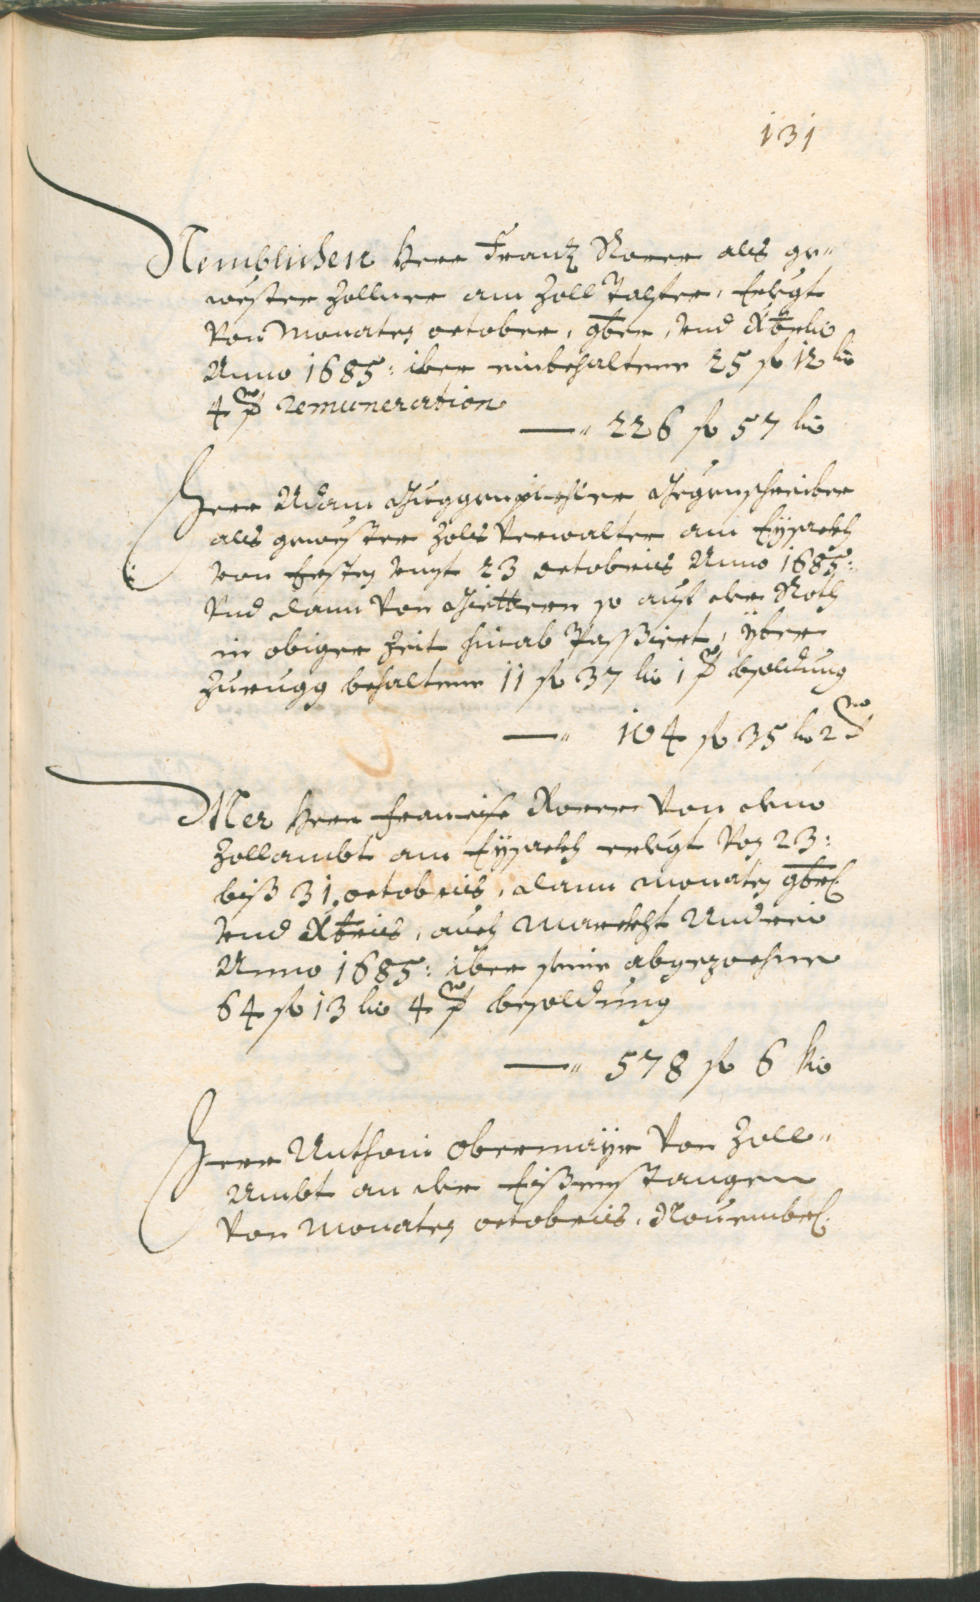 131
Nemblichen Herr Franz Rorer als ge¬
wester Zollner am Zoll Talfer, Erlegt
Von Monates october, 9ber, Und Xbris
Anno 1685: iber einbehaltene 25 fl 12 kr
4 ₰ remuneration
—" 226 fl 57 kr
Herr Adam Guggenpichler Gegenschreiber
als gewester Zohls Verwalter am Eysackh
von Ersten Unzt 23 octobris Anno 1685:
Und dann Von Güettern so auf der Roth
in obiger Zeit hinab Passiert, yber
Zurugg behaltene 11 fl 37 kr 1 ₰ besoldung
—" 104 fl 35 kr 2 ₰
Mer Herr Francisc Rorer Von dem
Zollambt am Eysackh erlegt Von 23:
biß 31. octobris, dann monates 9bris
Und Xbris, auch Marckht Andrei
Anno 1685: iber seine abgezochne
64 fl 13 kr 4 ₰ besoldung
—" 578 fl 6 kr
Herr Anthoni Obermayr Von Zoll¬
Ambt an der Eisenstangen
Von Monates octobris, Novembris